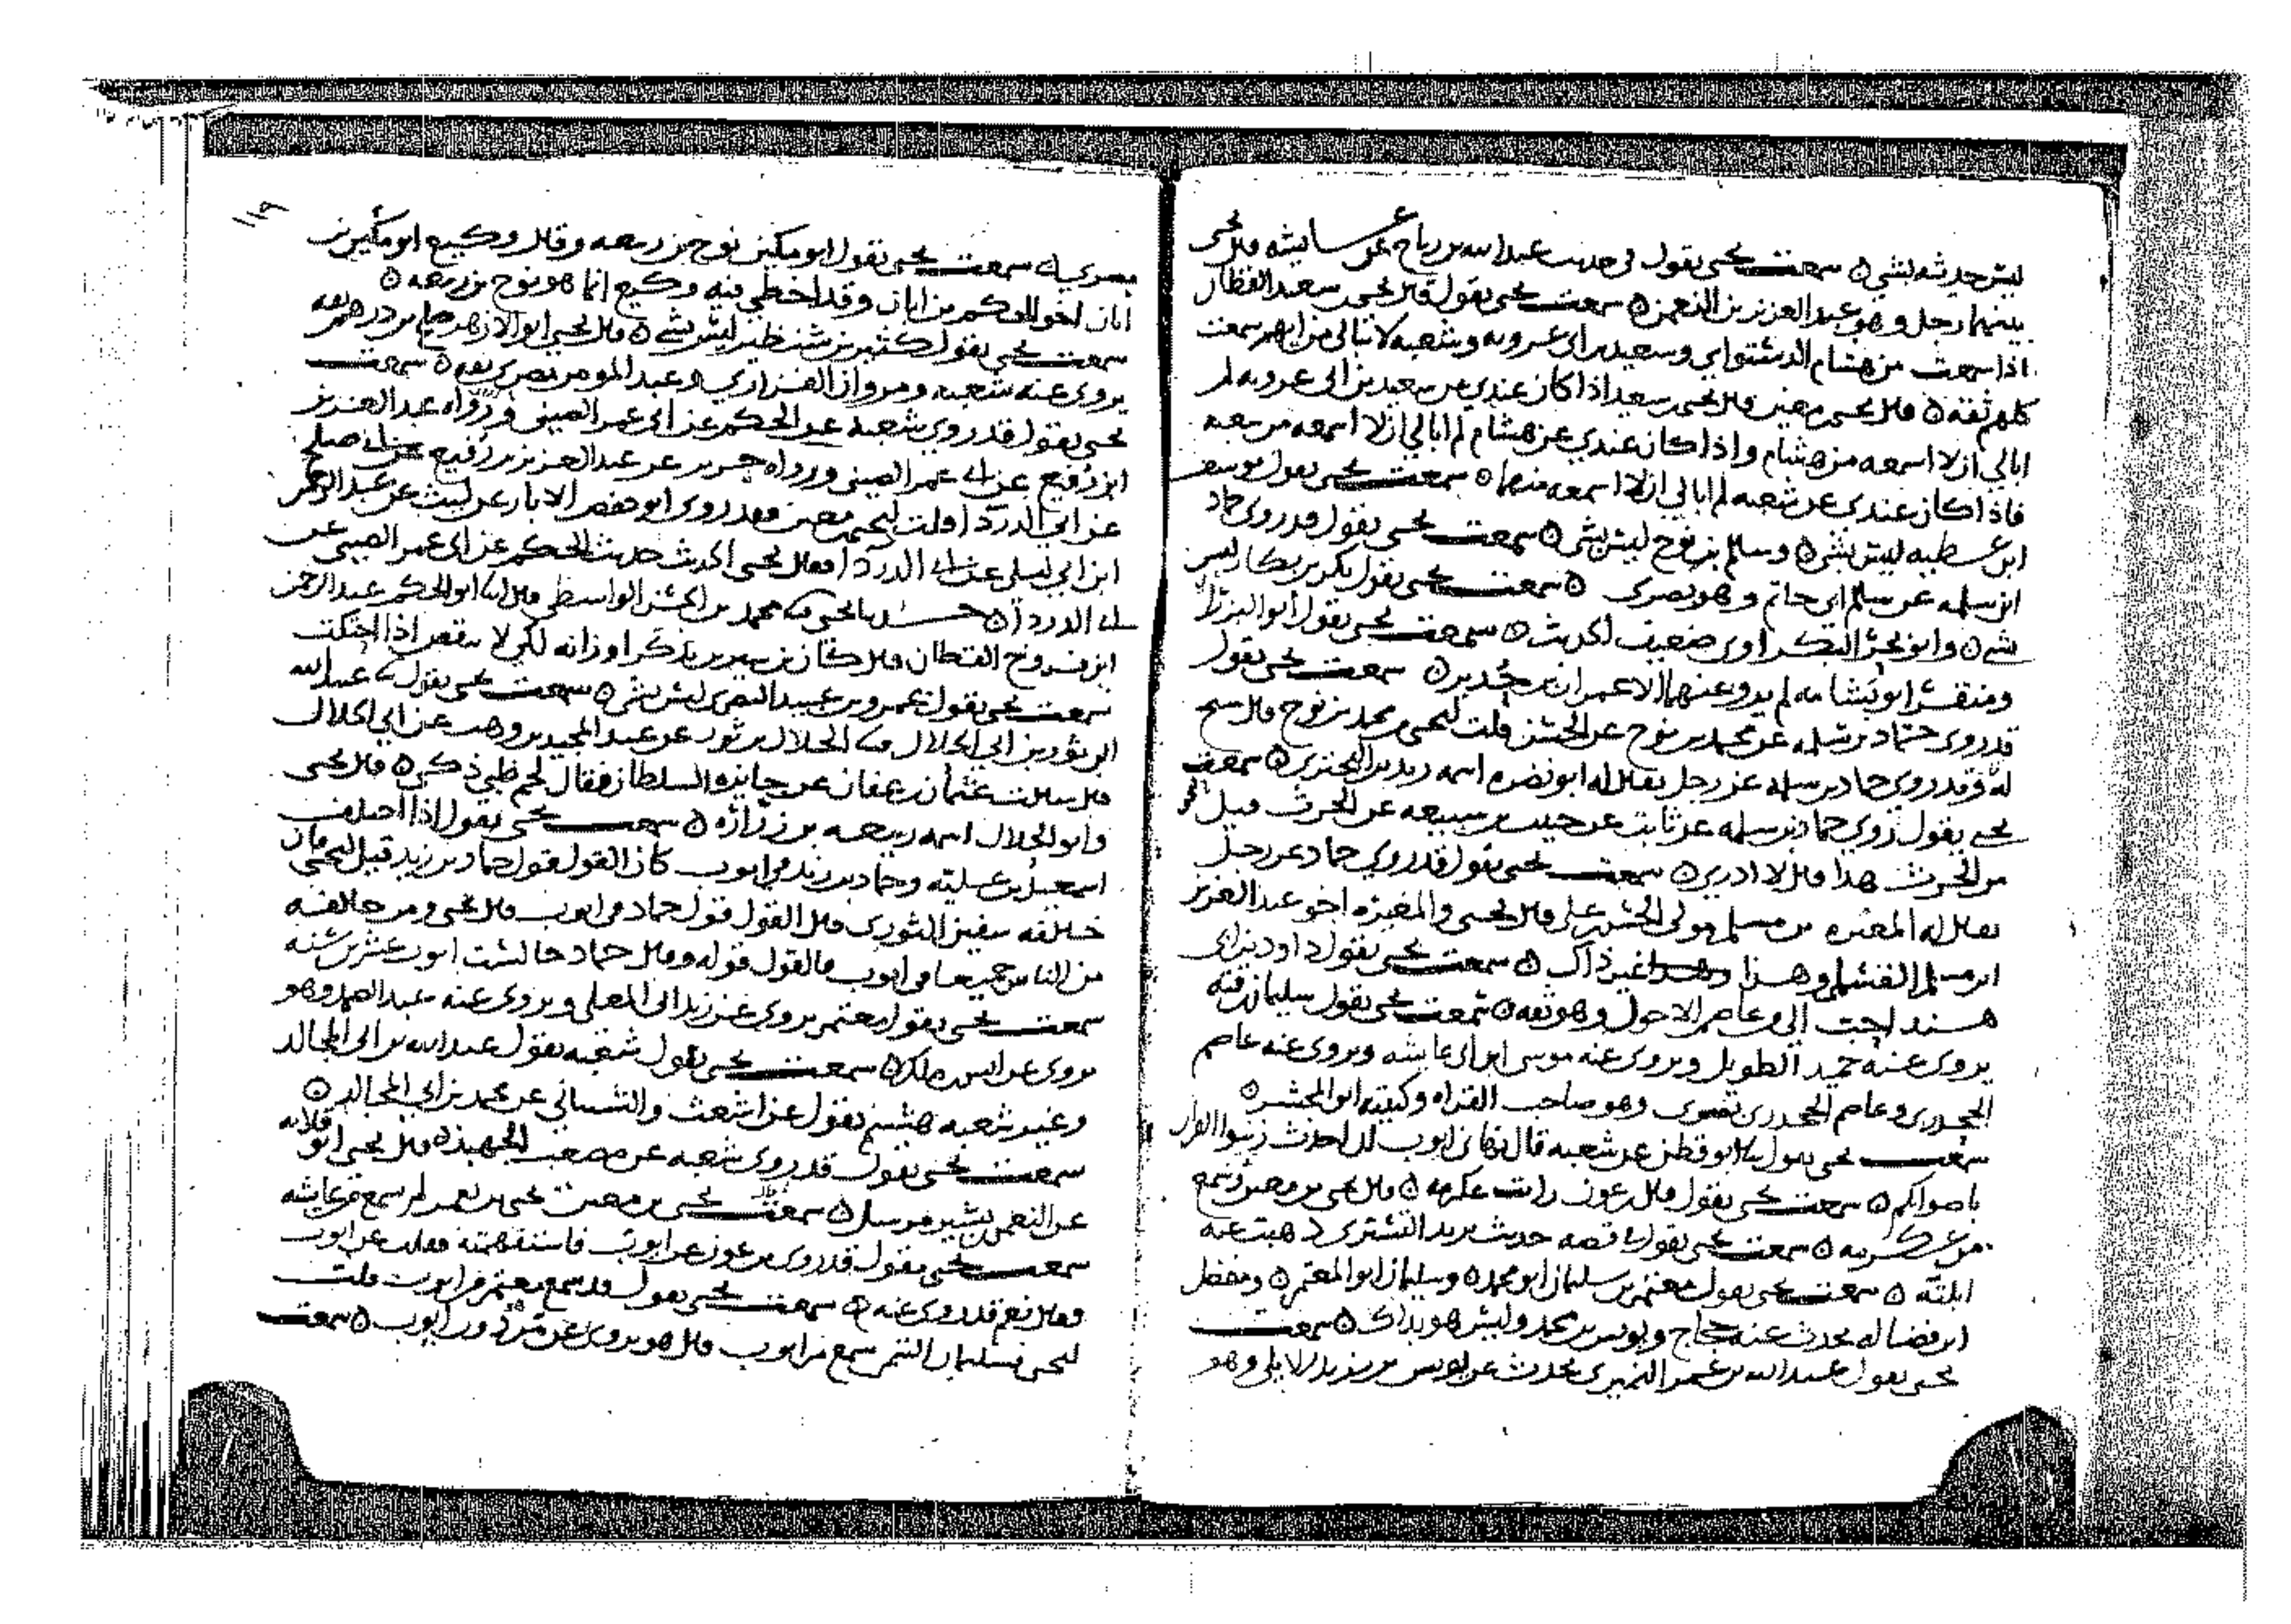 ليس حديثه بشي ٥ سمعت يحيى يقول في حديث عبد الله بن رباح عن عايشه قال يحيى
بينهما رجل وهو عبد العزيز بن النعمن ٥ سمعت يحيى يقول قال يحيى بن سعيد القطان
اذا سمعت من هشام الدستوايي وسعيد بن ابي عروبه وشعبه لا تبالي من ايهم سمعت
كلهم ثقه ٥ قال يحيى بن معين قال يحيى بن سعيد اذا كان عندي عن سعيد بن ابي عروبه لم
ابالي ان لا اسمعه من هشام واذا كان عندي عن هشام لم ابالي ان لا اسمعه من شعبه
فاذا كان عندي عن شعبه لم ابالي ان لا اسمعه منهما ٥ سمعت يحيى يقول يوسف
ابن عطيه ليس بشي ٥ وسالم بن نوح ليس بشي ٥ سمعت يحيى يقول قد روى حماد
ابن سلمه عن سلم ابي حاتم وهو بصرى ٥ سمعت يحيى يقول بكر بن بكار ليس
بشي ٥ وابو بحر البكراوي ضعيف الحديث ٥ سمعت يحيى يقول ابو البزرا
ومنقر ابو بشامه لم يرو عنهما الا عمران بن حدير ٥ سمعت يحيى يقول
قد روى حماد بن سلمه عن محمد بن نوح عن الحسن قلت ليحيى محمد بن نوح قال شيخ
له وقد روى حماد بن سلمه عن رجل يقال له ابو نضره اسمه يزيد بن البحتري ٥ سمعت
يحيى يقول روى حماد بن سلمه عن ثابت عن حبيب بن سبيعه عن الحرث قيل ليحيى
من الحرث هذا قال لا ادري ٥ سمعت يحيى يقول قد روى حماد عن رجل
يقال له المغيره بن مسلم مولى الحسن بن علي قال يحيى والمغيره اخو عبد العزيز
ابن مسلم القسملي وهذا غير ذاك ٥ سمعت يحيى يقول داود بن ابي
هند احب الي من عاصم الاحول وهو ثقه ٥ سمعت يحيى يقول سليمان بن قته
يروى عنه حميد الطويل ويروى عنه موسى ابن ابي عايشه ويروى عنه عاصم
الجحدري وعاصم الجحدري بصرى وهو صاحب القراه وكنيته ابو المجشر ٥
سمعت يحيى يقول نا ابو قطن عن شعبه قال نهاني ايوب ان احدث زينوا القران
باصواتكم ٥ سمعت يحيى يقول قال عوف رايت عكرمه ٥ قال يحيى بن معين ولم يسمع
من عكرمه ٥ سمعت يحيى يقول نا قصه حديث يزيد التستري ذهبت عنه
البته ٥ سمعت يحيى يقول معتمر بن سليمان ابو محمد ٥ وسليمان ابو المعتمر ٥ ومفضل
ابن فضاله يحدث عنه حجاج ويونس بن محمد وليس هو بذاك ٥ سمعت
يحيى يقول عبد الله بن عمر النميري يحدث عن يونس بن يزيد الايلي وهو
١١٩
بصري ٥ سمعت يحيى يقول ابو مكين نوح بن ربيعه وقال وكيع ابو مكين بن
ابان اخو الحكم بن ابان وقد اخطى فيه وكيع انما هو نوح بن ربيعه ٥
سمعت يحيى يقول كثير بن شنظير ليس بشي ٥ قال يحيى ابو الازهر صالح بن درهم ثقه
يروى عنه شعبه ومروان الفزاري وعبد المومن بصرى ثقه ٥ سمعت
يحيى يقول قد روى شعبه عن الحكم عن ابي عمر الصيني ورواه عبد العزيز
ابن رفيع عن ابي عمر الصيني ورواه جرير عن عبد العزيز بن رفيع عن ابي صالح
عن ابي الدردا قلت ليحيى بن معين فقد روى ابو حفص الابار عن ليث عن عبد الرحمن
ابن ابي ليلى عن ابي الدردا فقال يحيى الحديث حديث الحكم عن ابي عمر الصيني عن
ابي الدردا ٥ حدثنا يحيى نا محمد بن الحسن الواسطي قال نا ابو الحكم عبد الرحمن
ابن فروخ القطان قال كان ابن سيرين يذكر اوزانه لكي لا ينقص اذا احتكت
سمعت يحيى يقول عمرو بن عبيد البصري ليس بشي ٥ سمعت يحيى يقول نا عبد الله
ابن ثور بن ابي الحلال نا الحلال بن ثور عن عبد المجيد بن وهب عن ابي الحلال
قال سالت عثمان بن عفان عن جايزه السلطان فقال لحم ظبي ذكي ٥ قال يحيى
وابو الحلال اسمه ربيعه بن زراره ٥ سمعت يحيى يقول اذا اختلف
اسمعيل بن عليه وحماد بن زيد في ايوب كان القول قول حماد بن زيد قيل ليحيى فان
خالفه سفين الثوري قال القول قول حماد في ايوب قال يحيى ومن خالفه
من الناس جميعا في ايوب فالقول قوله وقال حماد جالست ايوب عشرين سنه
سمعت يحيى يقول معتمر يروى عن زيد ابي المعلى ويروى عنه عبد الصمد وهو
يروى عن انس بن ملك ٥ سمعت يحيى يقول شعبه يقول عبد الله بن ابي المجالد
وغير شعبه هشيم يقول عن اشعث والشيباني عن محمد بن ابي المجالد ٥
سمعت يحيى يقول قد روى شعبه عن مصعب الجهبذ ٥ قال يحيى ابو قلابه
عن النعمن بن بشير مرسل ٥ سمعت يحيى بن معين يحيى بن يعمر لم يسمع من عايشه
سمعت يحيى يقول قد روى بن عون عن ايوب فاستفهمته فقلت عن ايوب
فقال نعم قد روى عنه ٥ سمعت يحيى يقول قد سمع معتمر من ايوب قلت
ليحيى فسليمان التيمي سمع من ايوب قال هو يروى عن ايوب ٥ سمعت